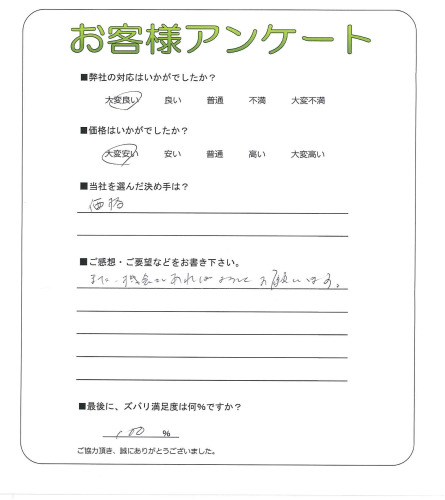 お客様アンケート
■弊社の対応はいかがでしたか？
大変良い 良い 普通 不満 大変不満
■価格はいかがでしたか？
大変安い 安い 普通 高い 大変高い
■当社を選んだ決め手は？
価格
■ご感想・ご要望などをお書き下さい。
また、機会があれば よろしく お願いします。
■最後に、ズバリ満足度は何%ですか？
100 %
ご協力頂き、誠にありがとうございました。